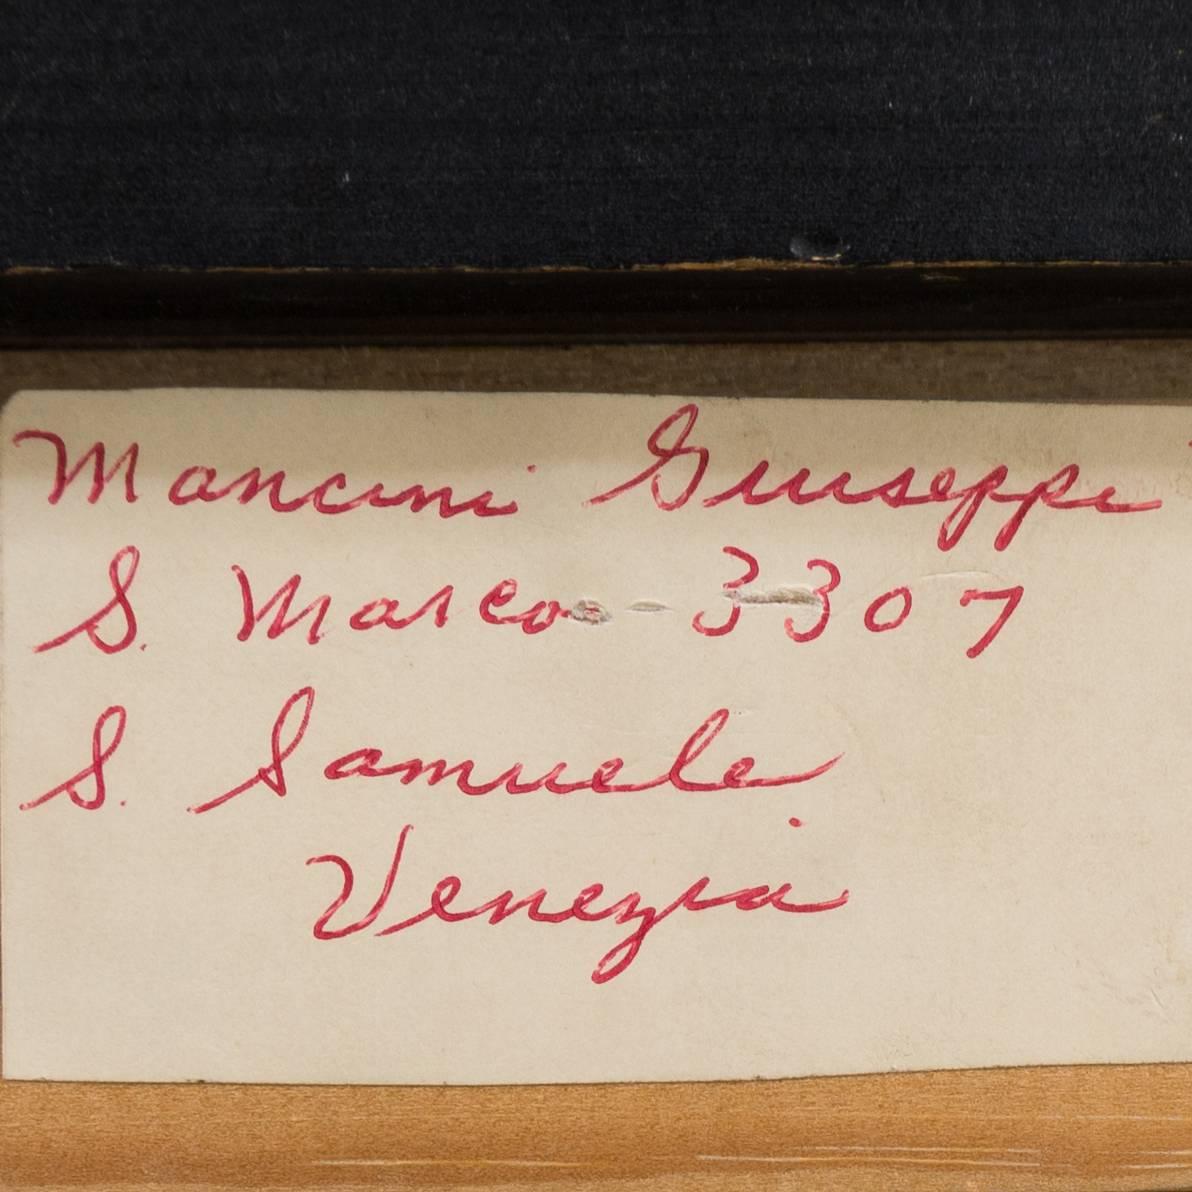 Mancini Giuseppe
S. Marco - 3307
S. Samuele
Venezia